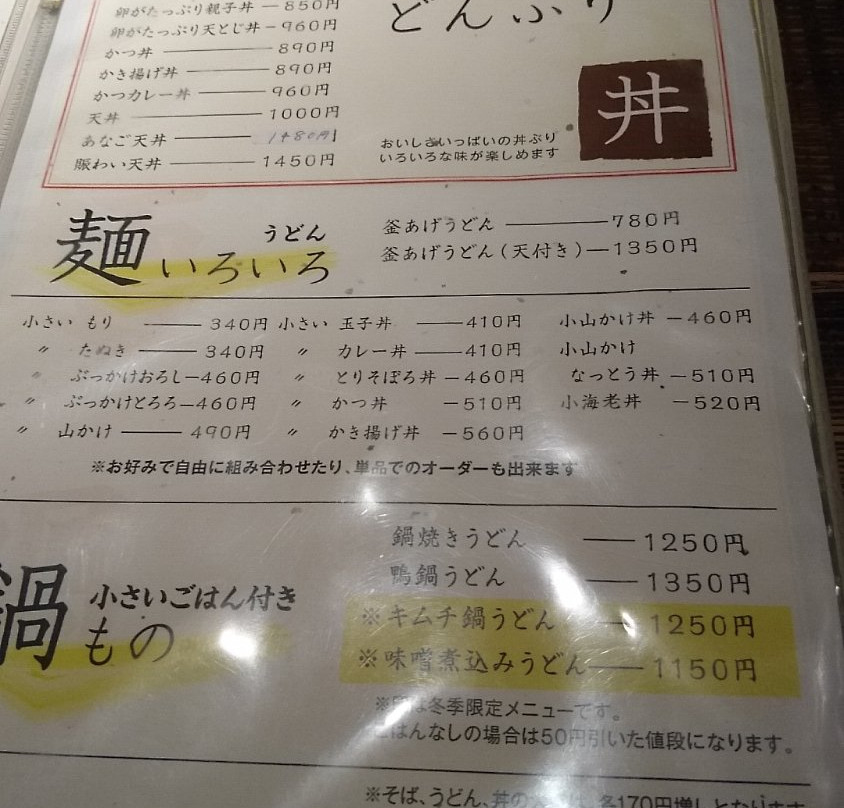 卵がたっぷり親子丼 ― 850円
卵がたっぷり天とじ丼 ― 960円
かつ丼 ――― 890円
かき揚げ丼 ――― 890円
かつカレー丼 ――― 960円
天丼 ――― 1000円
あなご天丼 ――― 1480円
賑わい天丼 ――― 1450円
どんぶり
丼
おいしさいっぱいの丼ぶり
いろいろな味が楽しめます
麺いろいろ
うどん
釜あげうどん ――― 780円
釜あげうどん(天付き) ― 1350円
小さい もり ――― 340円
〃 たぬき ――― 340円
〃 ぶっかけおろし ― 460円
〃 ぶっかけとろろ ― 460円
〃 山かけ ――― 490円
小さい 玉子丼 ――― 410円
〃 カレー丼 ――― 410円
〃 とりそぼろ丼 ― 460円
〃 かつ丼 ― 510円
〃 かき揚げ丼 ― 560円
小山かけ丼 ― 460円
小山かけ
なっとう丼 ― 510円
小海老丼 ― 520円
※お好みで自由に組み合わせたり、単品でのオーダーも出来ます
鍋もの
小さいごはん付き
鍋焼きうどん ―― 1250円
鴨鍋うどん ―― 1350円
※キムチ鍋うどん ― 1250円
※味噌煮込みうどん ―― 1150円
※印は冬季限定メニューです。
ごはんなしの場合は50円引いた値段になります。
※そば、うどん、丼の は、各170円増しとなります